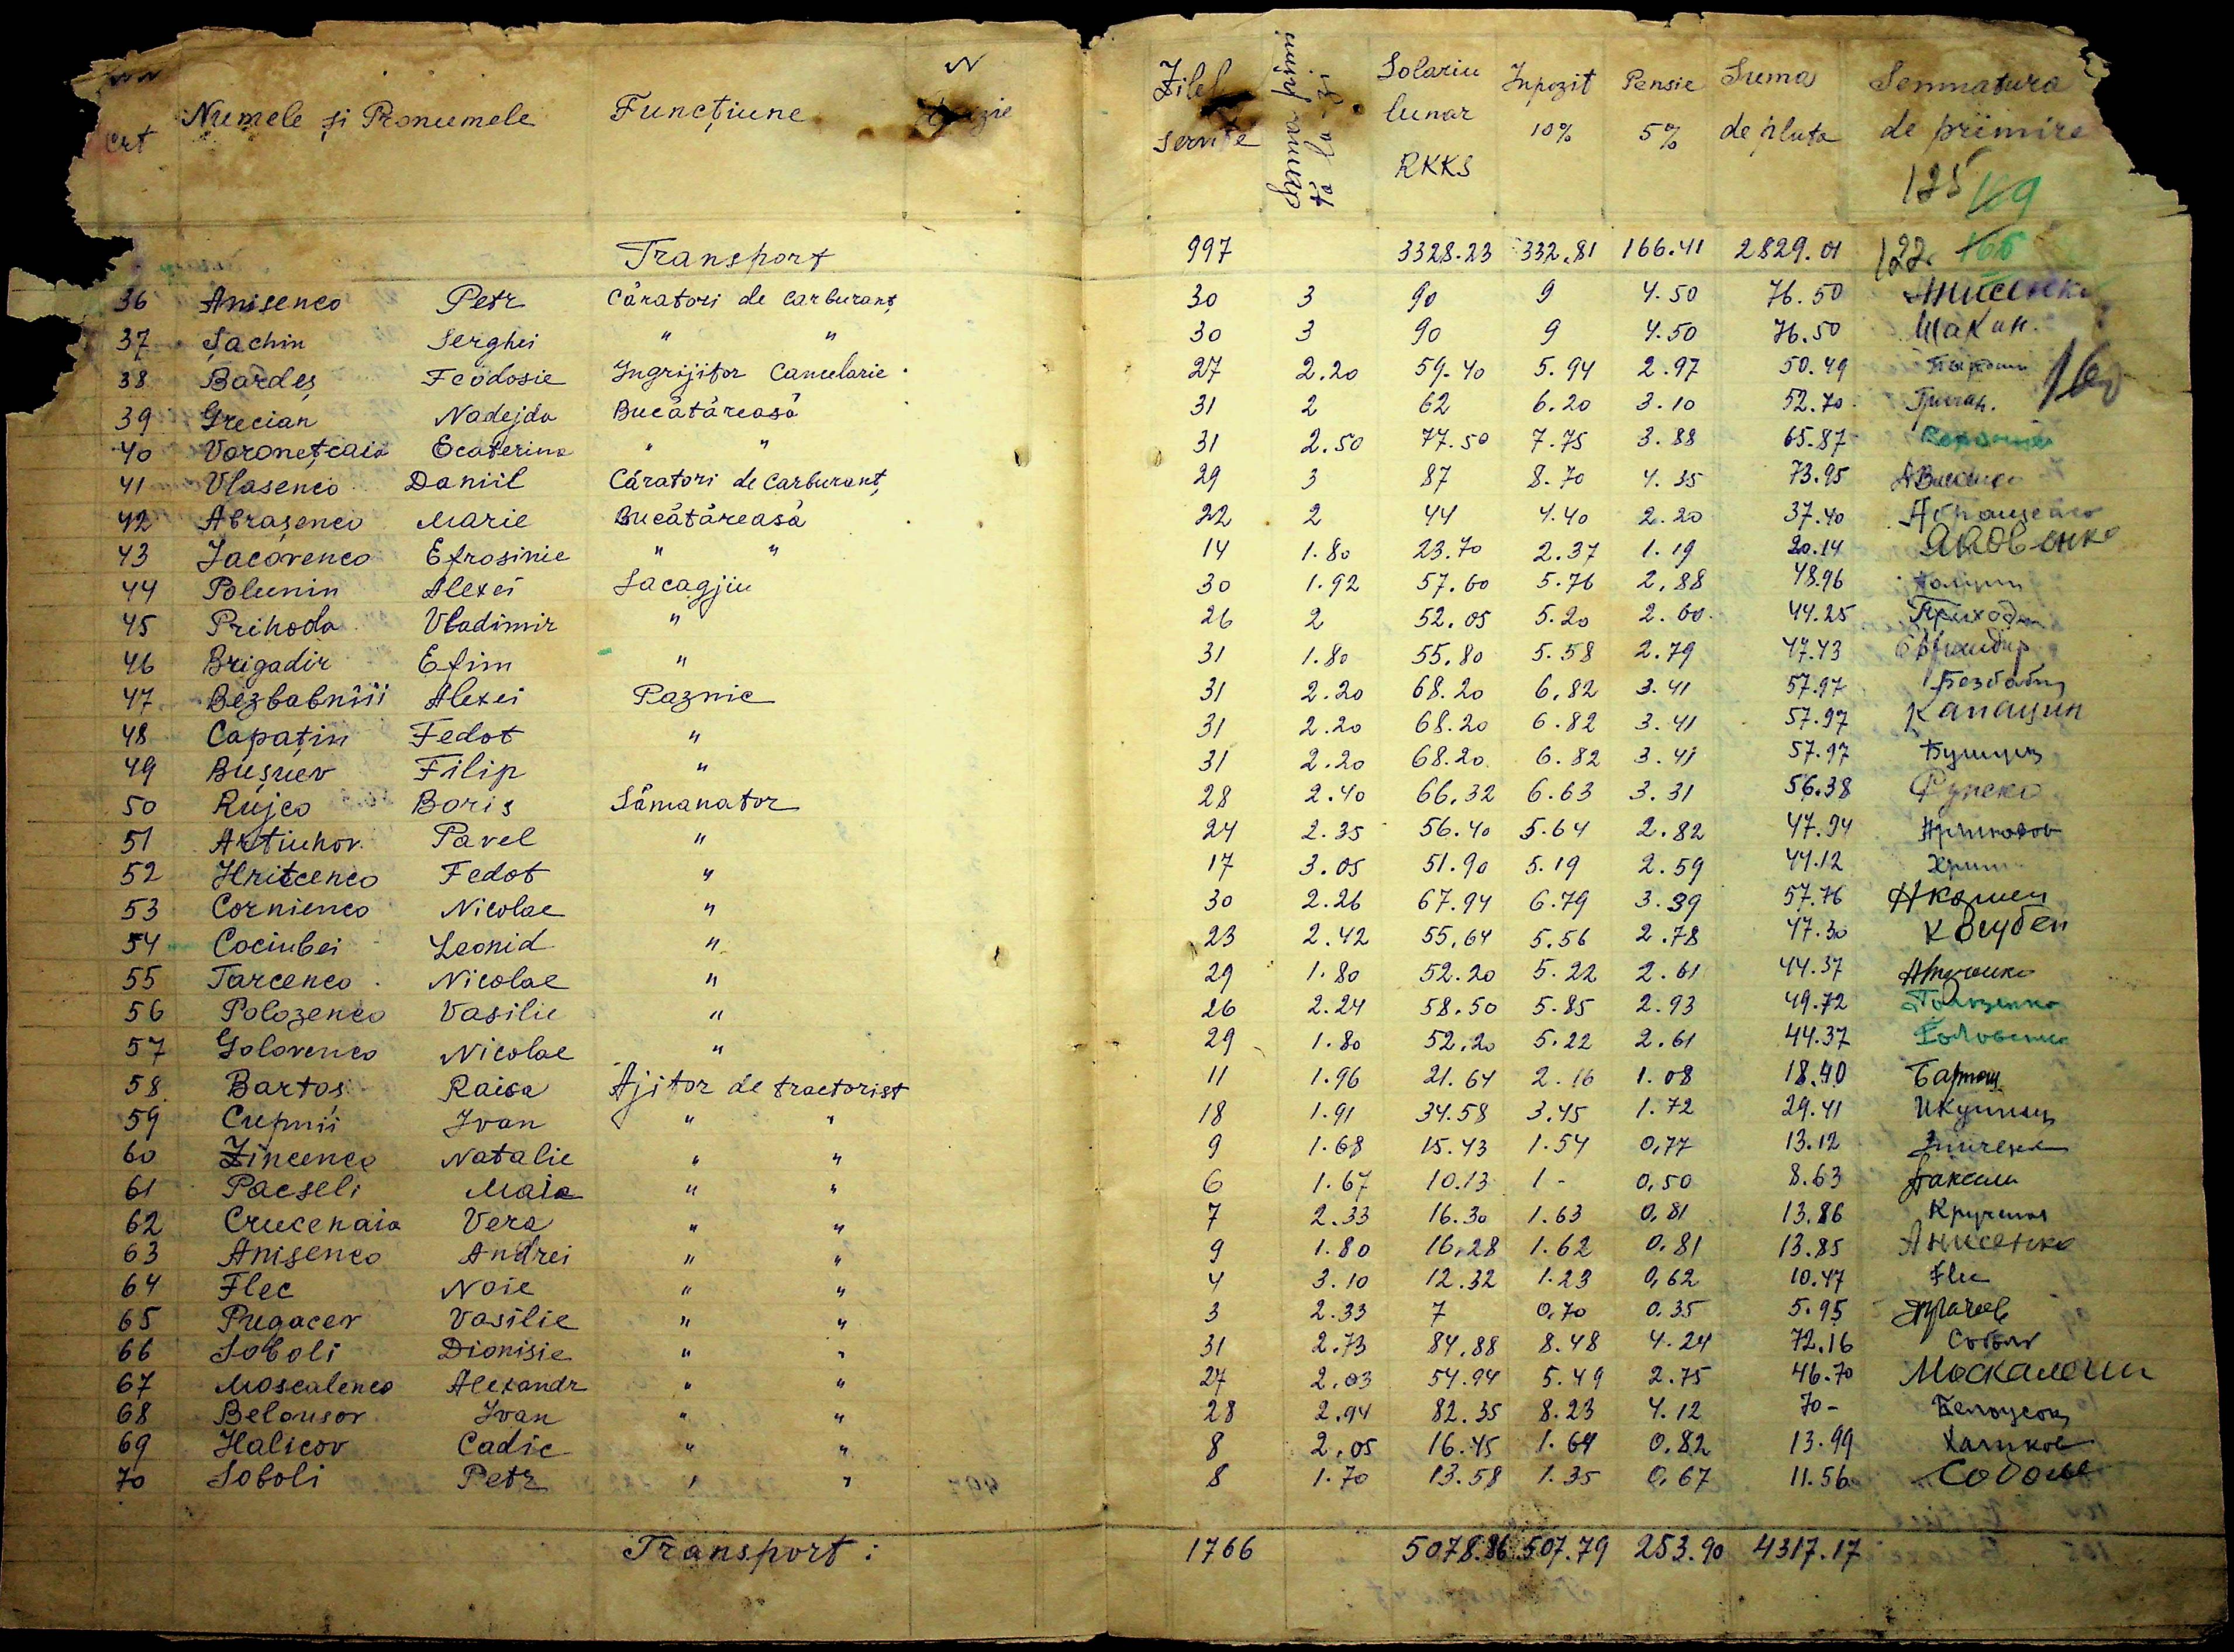 Crt Numele și Pronumele Funcțiune Zile servite Solariu lunar RKKS Inpozit 10% Pensie 5% Suma de pluta Semnatura de primire
125 169
Transport 997 3328.23 332.81 166.41 2829.01 122. 166
36 Anisenco Petr Căratori de carburanț 30 3 90 9 4.50 76.50 Анисенко
37 Șachin Serghei " " 30 3 90 9 4.50 76.50 Шакин.
38 Bardeș Feodosie Ingrijitor Canelarie 27 2.20 59.40 5.94 2.97 50.49 160
39 Grecian Nadejda Bucătăreasă 31 2 62 6.20 3.10 52.70
40 Voronețcaia Ecaterina " " 31 2.50 77.50 7.75 3.88 65.87
41 Vlasenco Daniil Căratori de carburanț 29 3 87 8.70 4.35 73.95
42 Abrașenco Marie Bucătăreasă 22 2 44 4.40 2.20 37.40 Абрашенко
43 Iacovenco Efrosinie " " 14 1.80 23.70 2.37 1.19 20.14 Яковенко
44 Polunin Alexei Sacagjiu 30 1.92 57.60 5.76 2.88 48.96
45 Prihoda Vladimir " 26 2 52.05 5.20 2.60. 44.25 Прихода
46 Brigadir Efim " 31 1.80 55.80 5.58 2.79 47.43
47 Bezbabnîii Alexei Paznic 31 2.20 68.20 6.82 3.41 57.97
48 Capațin Fedot " 31 2.20 68.20 6.82 3.41 57.97 Капацин
49 Bușuev Filip " 31 2.20 68.20 6.82 3.41 57.97
50 Rujco Boris Sămanator 28 2.40 66.32 6.63 3.31 56.38
51 Artiuhov Pavel " 24 2.35 56.40 5.64 2.82 47.94
52 Hritcenco Fedot " 17 3.05 51.90 5.19 2.59 44.12
53 Cornienco Nicolae " 30 2.26 67.94 6.79 3.39 57.76
54 Cociubei Leonid " 23 2.42 55.64 5.56 2.78 47.30 Кочубей
55 Tarcenco Nicolae " 29 1.80 52.20 5.22 2.61 44.37
56 Polozenco Vasilie " 26 2.24 58.50 5.85 2.93 49.72 Полозенко
57 Golovenco Nicolae " 29 1.80 52.20 5.22 2.61 44.37
58 Bartos Raisa Ajitor de tractorist 11 1.96 21.64 2.16 1.08 18.40 Бартош
59 Cupnii Ivan " " 18 1.91 34.58 3.45 1.72 29.41
60 Zincenco Natalie " " 9 1.68 15.43 1.54 0,77 13.12
61 Pacseli Maia " " 6 1.67 10.13 1 - 0,50 8.63
62 Crucenaia Vera " " 7 2.33 16.30 1.63 0,81 13.86
63 Anisenco Andrei " " 9 1.80 16.28 1.62 0.81 13.85 Анисенко
64 Flec Noie " " 4 3.10 12.32 1.23 0,62 10.47 Flec
65 Pugacev Vasilie " " 3 2.33 7 0,70 0.35 5.95
66 Soboli Dionisie " " 31 2.73 84.88 8.48 4.24 72.16 Соболь
67 Moscalenco Alexandr " " 27 2.03 54.94 5.49 2.75 46.70
68 Belousov Ivan " " 28 2.94 82.35 8.23 4.12 70 -
69 Halicov Cadic " " 8 2.05 16.45 1.64 0.82 13.99 Халиков
70 Soboli Petr " " 8 1.70 13.58 1.35 0,67 11.56
Transport : 1766 5078.86 507.79 253.90 4317.17